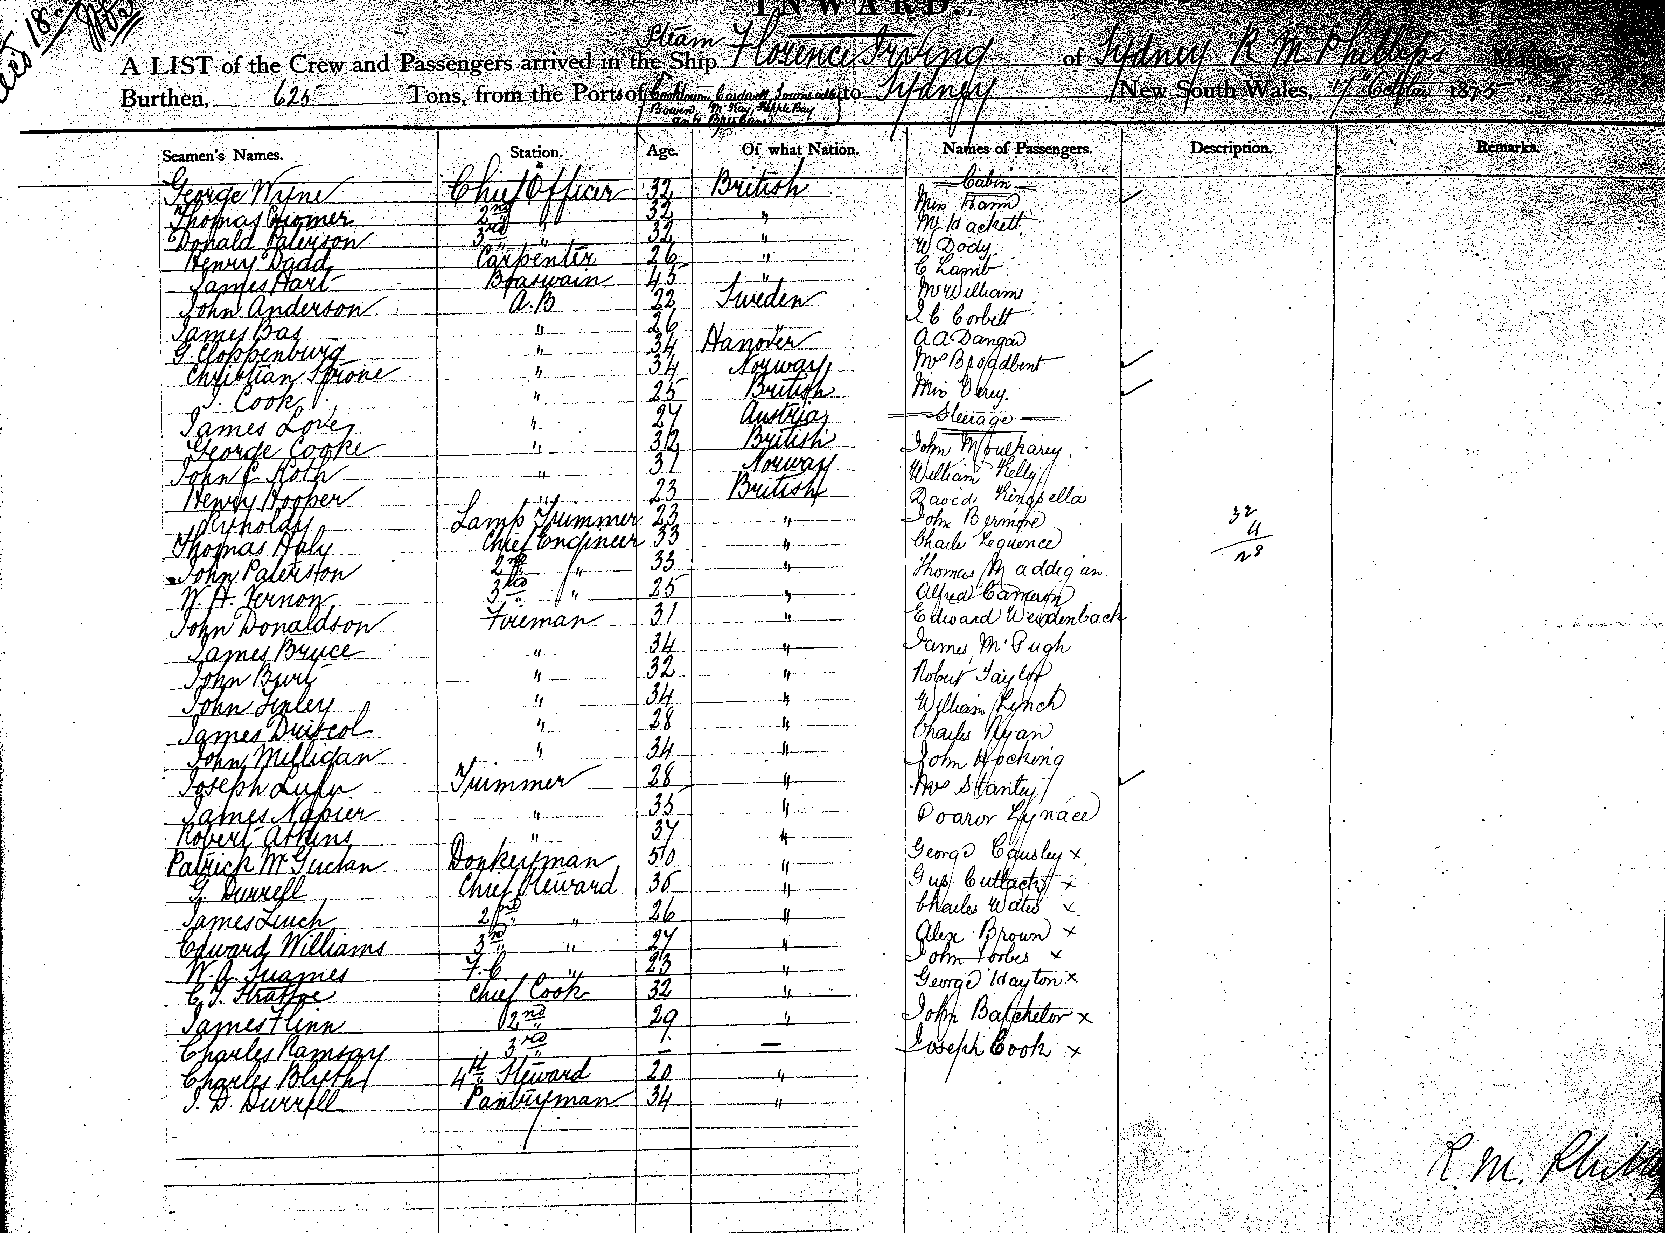 INWARD.
A LIST of the Crew and Passengers arrived in the Ship Steam Florence Irving of Sydney R M Phillips Master,
Burthen, 625 Tons, from the Ports of Cooktown, Cardwell, Townsville to Sydney New South Wales, 1875
Bowen
Seamen's Names. Station. Age. Of what Nation. Names of Passengers. Description. Remarks.
George Wyne Chief Officer 32 British Cabin
Thomas 2nd " 32 " Miss Hann
Donald Paterson 3rd " 32 " Mr Hackett
Henry Dadd Carpenter 26 " W Dody
James Hart Boaswain 45 " C Lamb
John Anderson A.B 22 Sweden Mr Williams
James Bas " 26 J C Corbett
G. Cloppenburg " 34 Hanover A A Dangar
Christian " 34 Norway Mrs Broadbent
J. Cook " 25 British Miss Verey
James Love " 27 Austria Steerage
George Cooke " 32 British John
John C Roth " 31 Norway William Kelly
Henry Hooper " 23 British David Kingsella
Rynolds Lamp Trimmer 23 " John
Thomas Haly Chief Engineer 33 " Charles Lequence
John Paterston 2nd " 33 " Thomas Maddigan
W. H. Vernon 3rd " 25 " Alfred Cameron
John Donaldson Fireman 31 " Edward Weidenback
James Bryce " 34 " James McPugh
John Burt " 32 " Robert Taylor
John Finley " 34 " William Lynch
James Driscol " 28 " Charles Ryan
John Milligan " 34 " John Hocking
Joseph Trimmer 28 " Mrs Stanley
James Napier " 35 "
Robert Atkins " 37 "
Patrick McGuckan Donkeyman 50 " George Causley x
G. Durrell Chief Steward 35 " Gus Cutlack x
James Linch 2nd " 26 " Charles Wates x
Edward Williams 3rd " 27 " Alex Brown x
W. A. F.C. " 23 " John Forbes x
C. J. Chief Cook 32 " George Hayton x
James Flinn 2nd " 29 " John Batchelor x
Charles Ramsay 3rd " — — Joseph Cook x
Charles Blyth 4th Steward 20 "
J. D. Durrell Pantryman 34 "
32
4
28
R. M. Phillips